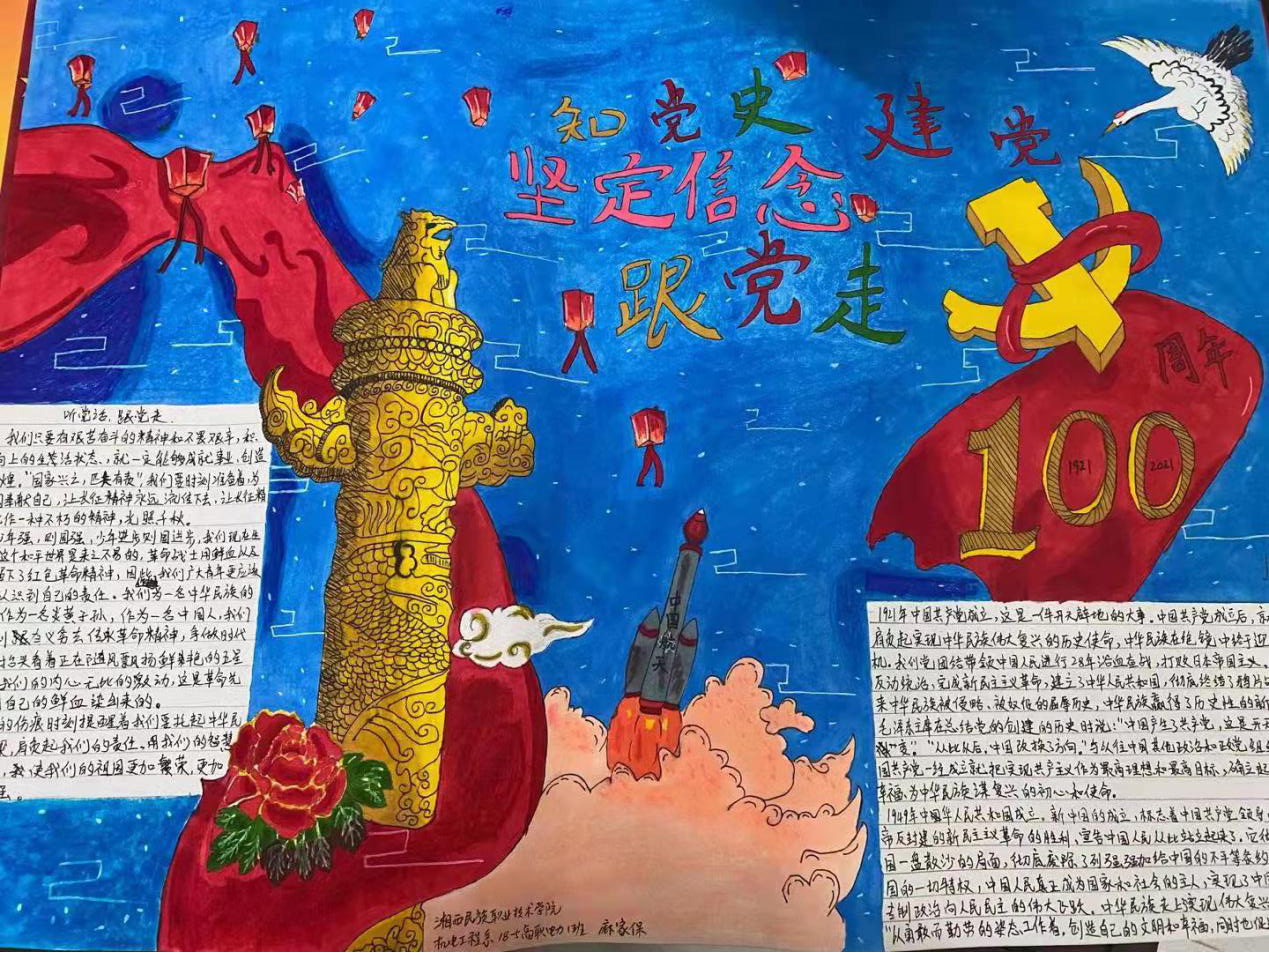 知党史 建党
坚定信念
跟党走
周年
100
1921 2021
中国航天
听党话，跟党走
我们只要有艰苦奋斗的精神和不畏艰辛，积
向上的生活状态，就一定能够成就事业，创造
煌。"国家兴亡，匹夫有责"，我们要时刻准备着，为
奉献自己，让长征精神永远流传下去，让长征精
作一种不朽的精神，光照千秋。
年强，则国强，少年进步则国进步，我们现在生
这个和平世界是来之不易的，革命战士用鲜血从及
留下了红色革命精神，因此，我们广大青年更应该
认识到自己的责任。我们为一名中华民族的
作为一名炎黄子孙，作为一名中国人，我们
义务去传承革命精神，争做时代
抬头看着正在随风飘扬鲜艳的五星
我们的内心无比的激动，这是革命先
自己的鲜血染出来的。
的伤痕时刻提醒着我们要扎起中华民
肩负起我们的责任。用我们的智慧
使我们的祖国更加繁荣，更加
强。
1921年中国共产党成立，这是一件开天辟地的大事。中国共产党成立后，
肩负起实现中华民族伟大复兴的历史使命，中华民族在绝境中终于迎
机。我们党团结带领中国人民进行28年浴血奋战，打败日本帝国主义，
反动统治，完成新民主主义革命，建立了中华人民共和国，彻底终结了鸦片
来中华民族被侵略、被奴役的屈辱历史，中华民族赢得了历史性的新
毛泽东主席在总结党的创建的历史时说："中国产生了共产党，这是开
变"。"从此以后，中国改换了方向。"与以往中国其他政治和政党
国共产党一经成立就把实现共产主义作为最高理想和最高目标，确立起
幸福，为中华民族谋复兴的初心和使命。
1949年中国华人民共和国成立。新中国的成立，标志着中国共产党领导
帝反封建的新民主主义革命的胜利，宣告中国人民从此站立起来了，它
国一盘散沙的局面，彻底废除了列强强加给中国的不平等条约
国的一切特权，中国人民真正成为国家和社会的主人，实现了中
专制政治向人民民主的伟大飞跃。中华民族走上实现伟大复兴
"从勇敢而勤劳的姿态工作着，创造自己的文明和幸福，同时也促
湘西民族职业技术学院
机电工程系 18-5高职电力1班 麻家保